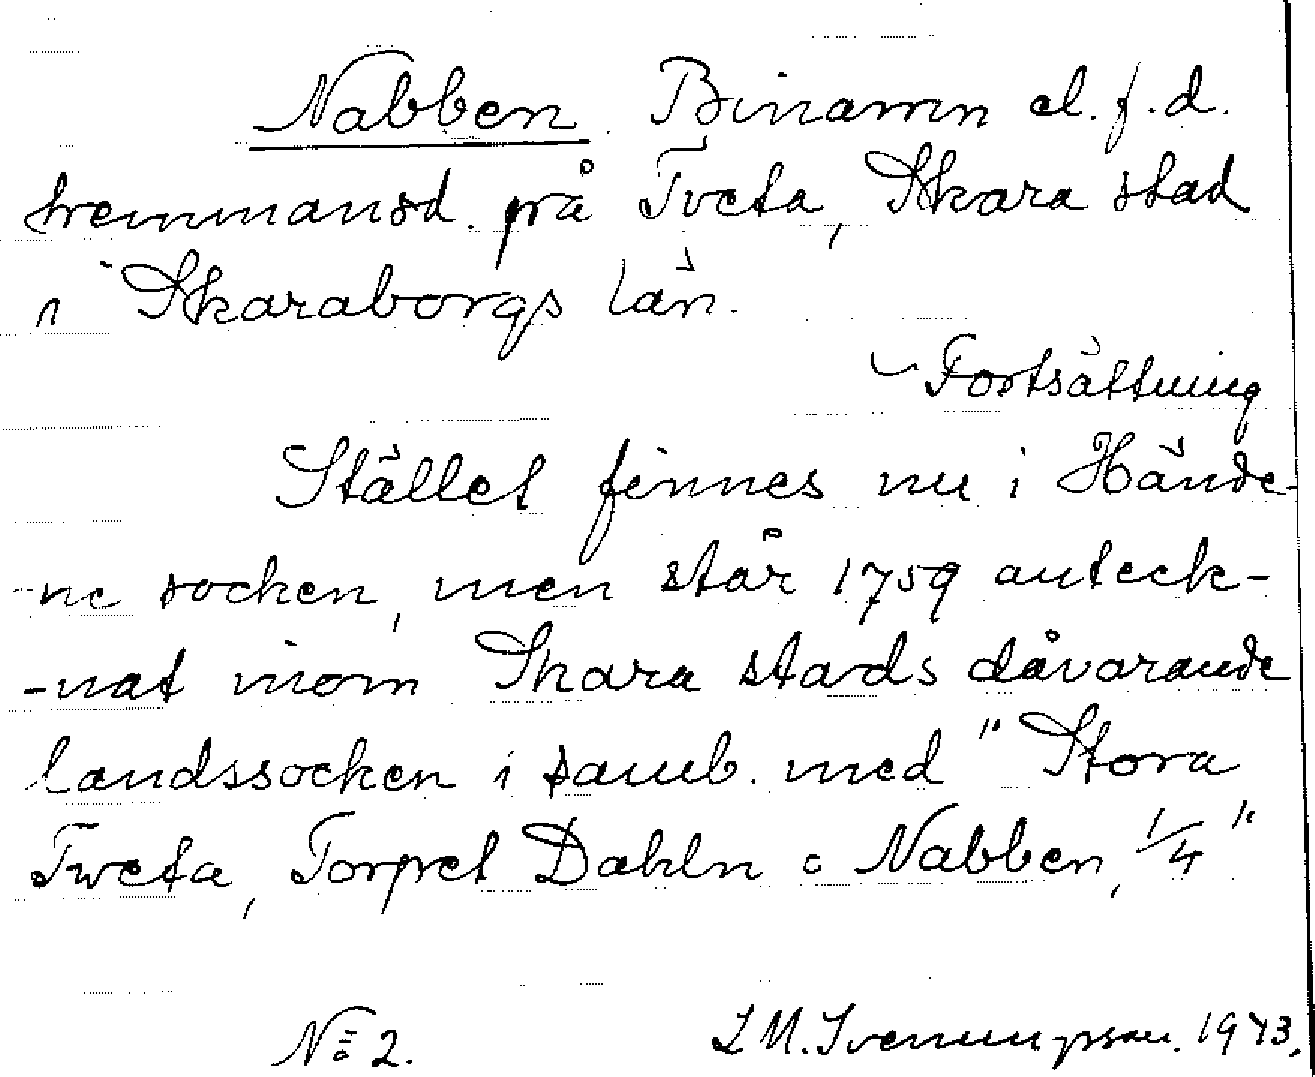 Nabben. Binamn el. f. d.
hemmansd. på Tveta, Skara stad
i Skaraborgs län.
Fortsättning
Stället finnes nu i Hände-
-ne socken, men står 1759 anteck-
-nat inom Skara stads dåvarande
landssocken i samb. med "Stora
Tweta, Torpet Dahln o Nabben, 1/4"
No 2. L M. Svenungsson. 1973.